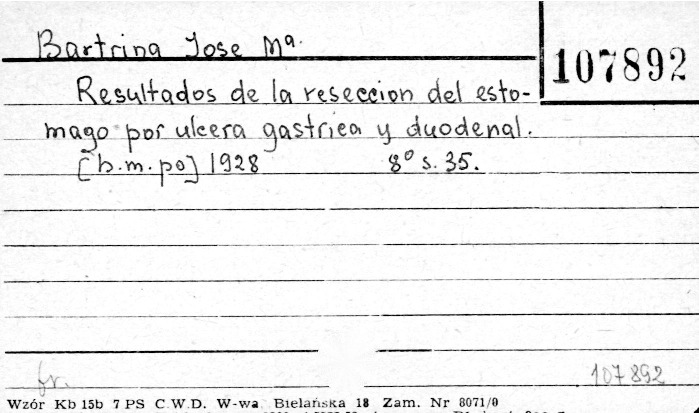 Bartrina Jose Mª.
107892
Resultados de la reseccion del esto-
mago por ulcera gastrica y duodenal.
[b.m.po] 1928 8° s. 35.
fr.
107892
Wzór Kb 15b 7 PS C.W.D. W-wa Bielańska 18 Zam. Nr 8071/0